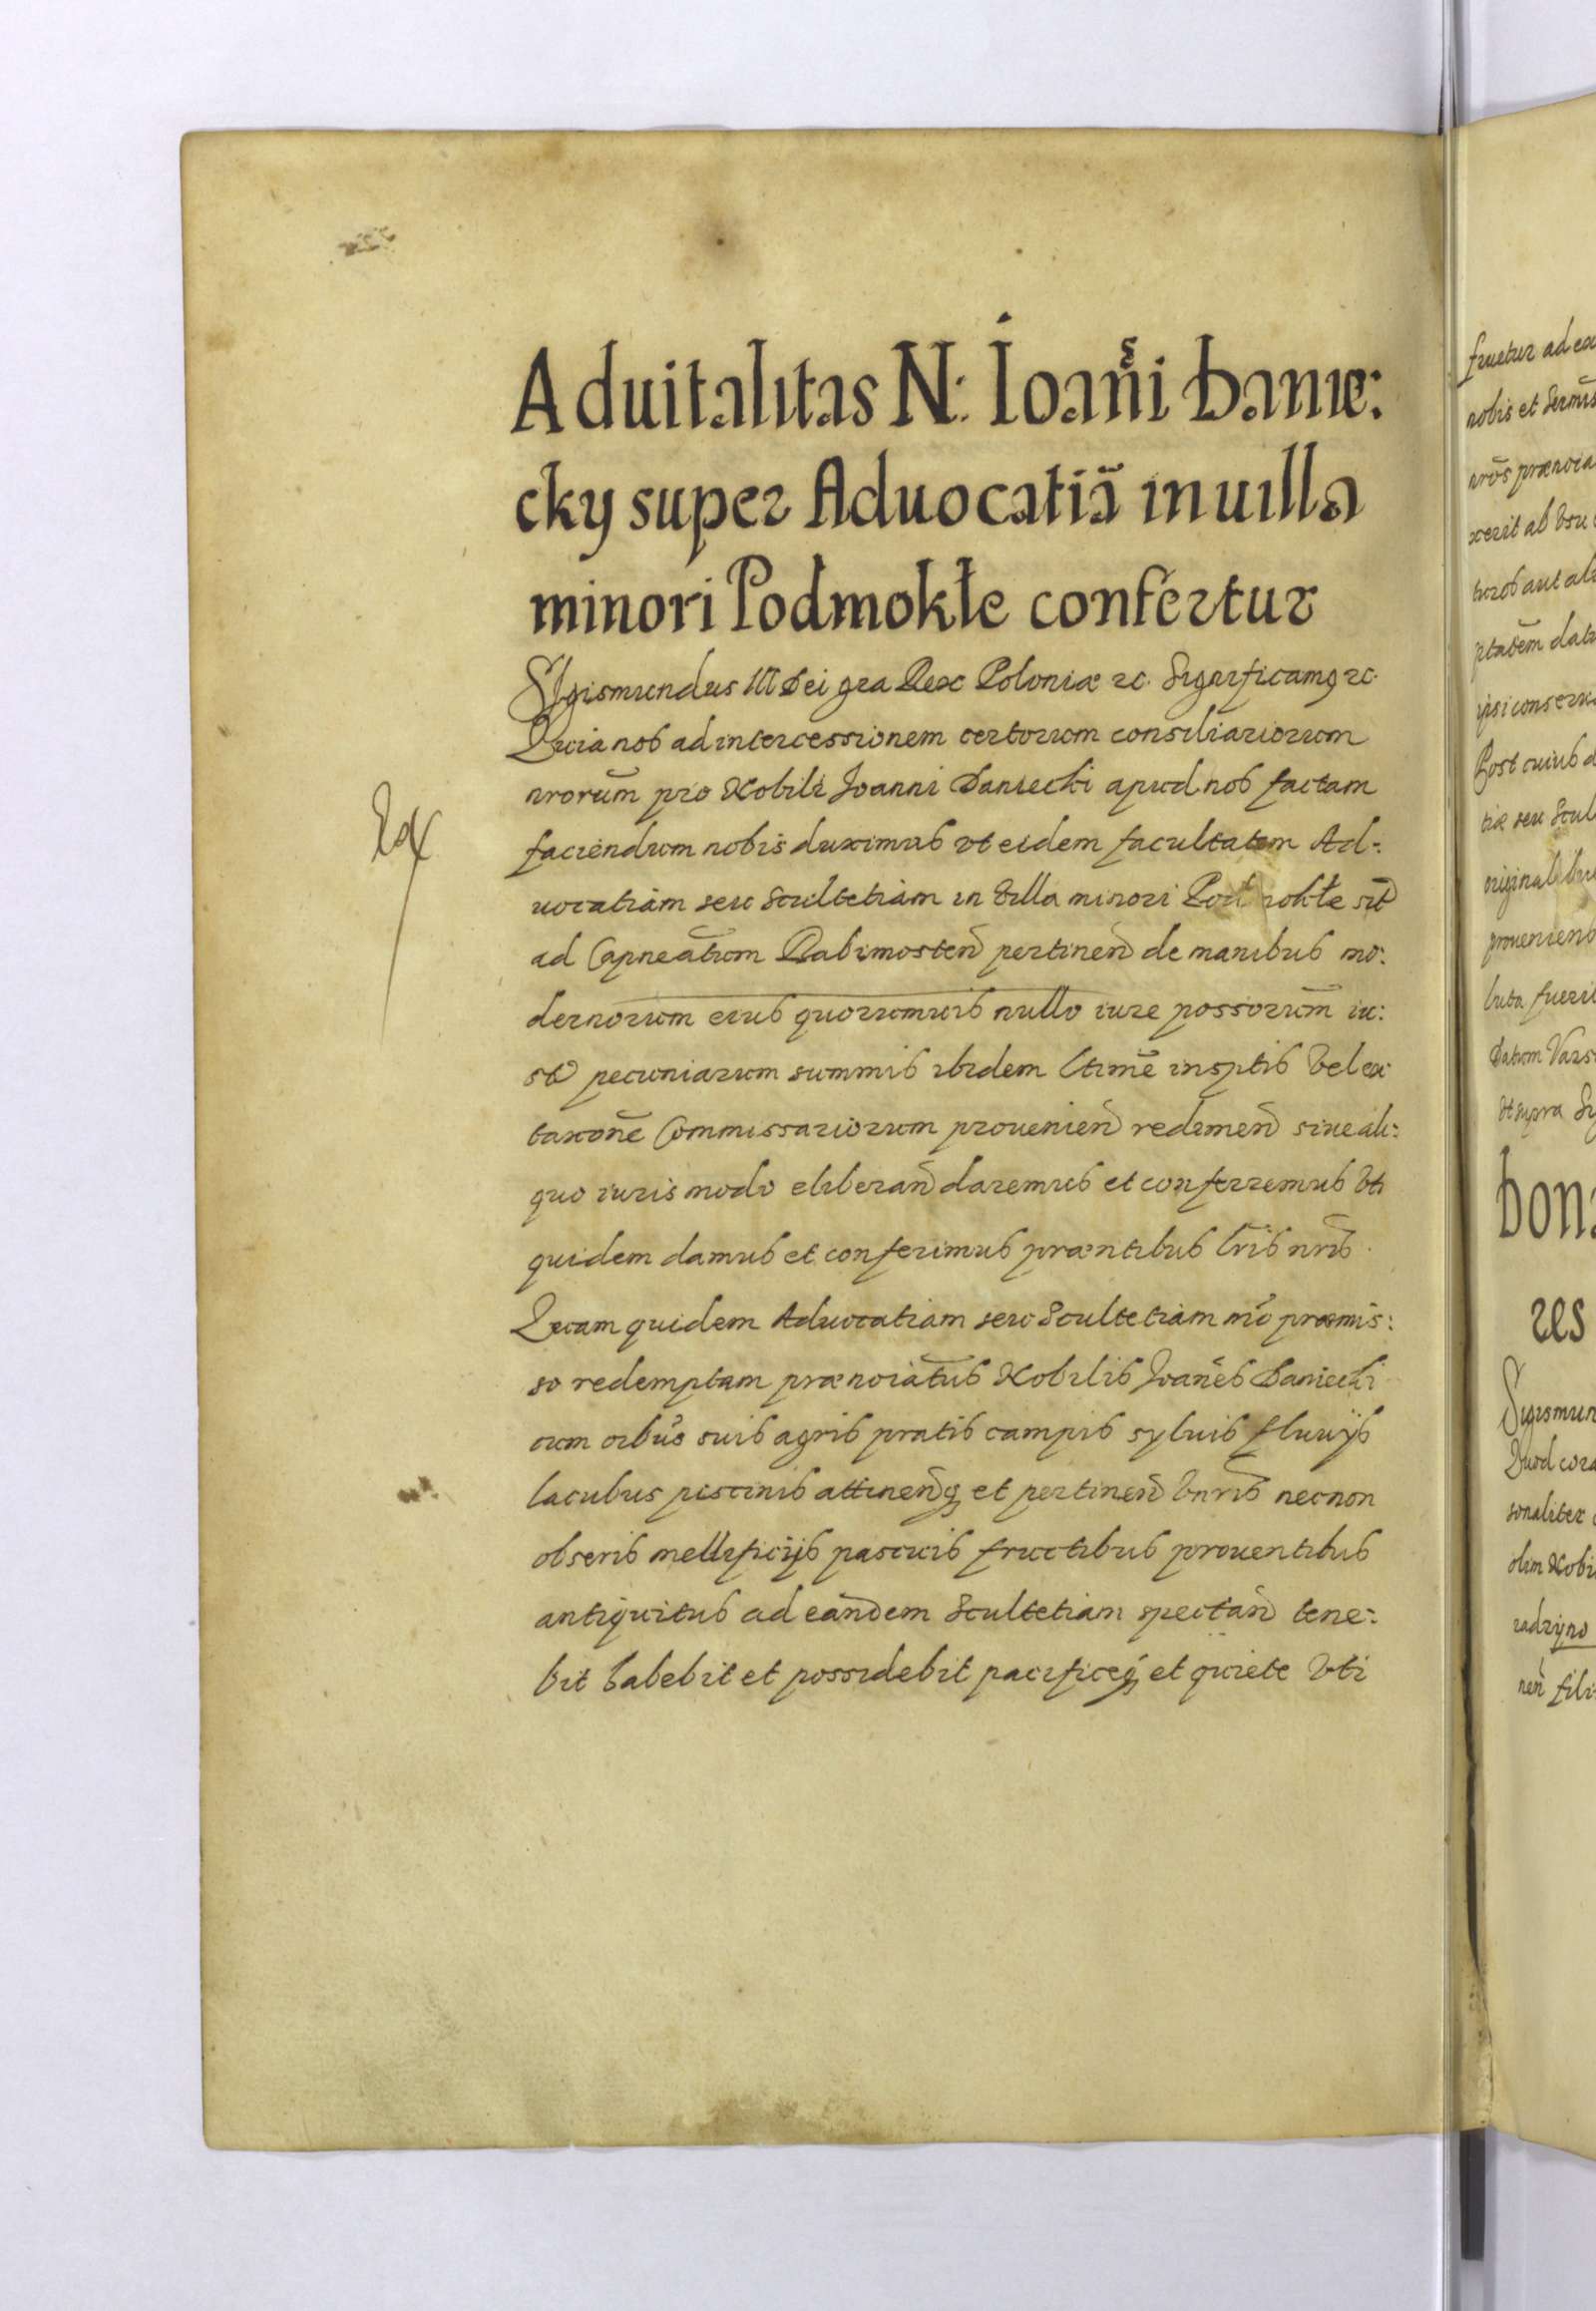 Aduitalitas N: Ioan̄i Danie:
cky super Aduocatiā in uilla
minori Podmokłe confertur
Sigismundus III Dei gra Rex Poloniæ etc. Significamq etc.
Quia nos ad intercessionem certorum consiliariorum
nrorum̄ pro Nobili Joanni Daniecki apud nos factam
faciendum nobis duximus vt eidem facultatem Ad:
uocatiam seu Scultetiam in Villa minori Podmokłe sit̄
ad Capneatum̄ Babimosten̄ pertinen̄ de manibus mo:
dernorum eius quorumuis nullo iure possorum̄ iu:
pecuniarum summis ibidem ltime̅ insptis Vel ex
taxone̅ Commissariorum prouenien̄ redimen̄ siue ali:
quo iuris modo eliberan̄ daremus et conferremus Vti
quidem damus et conferimus præntibus lr̄is nr̄is.
Quam quidem Aduocatiam seu Scultetiam mō præmis:
so redemptam prænoiatus̄ Nobilis Joan̄es Daniecki
cum oībus suis agris pratis campis syluis fluuijs
lacubus piscinis attinen̄q et pertinen̄ Vnris̄ necnon
obseris mellificijs pascuis fructibus prouentibus
antiquitus ad eandem Scultetiam spectan̄ tene:
bit habebit et possidebit pacificeq et quiete Vti
fruetur ad
nobis et
nrōs prænoia
xerit ab Vsu
aut
ptatem̄
ipsi conserua
Post cuius
tiæ seu Scul
originalibus
prouenien
luta fueri
Datum Vars
Vt supra
bona
res
Sigismun
Quod cora
sonaliter
olim Nobi
radzyno
nen̄ fili